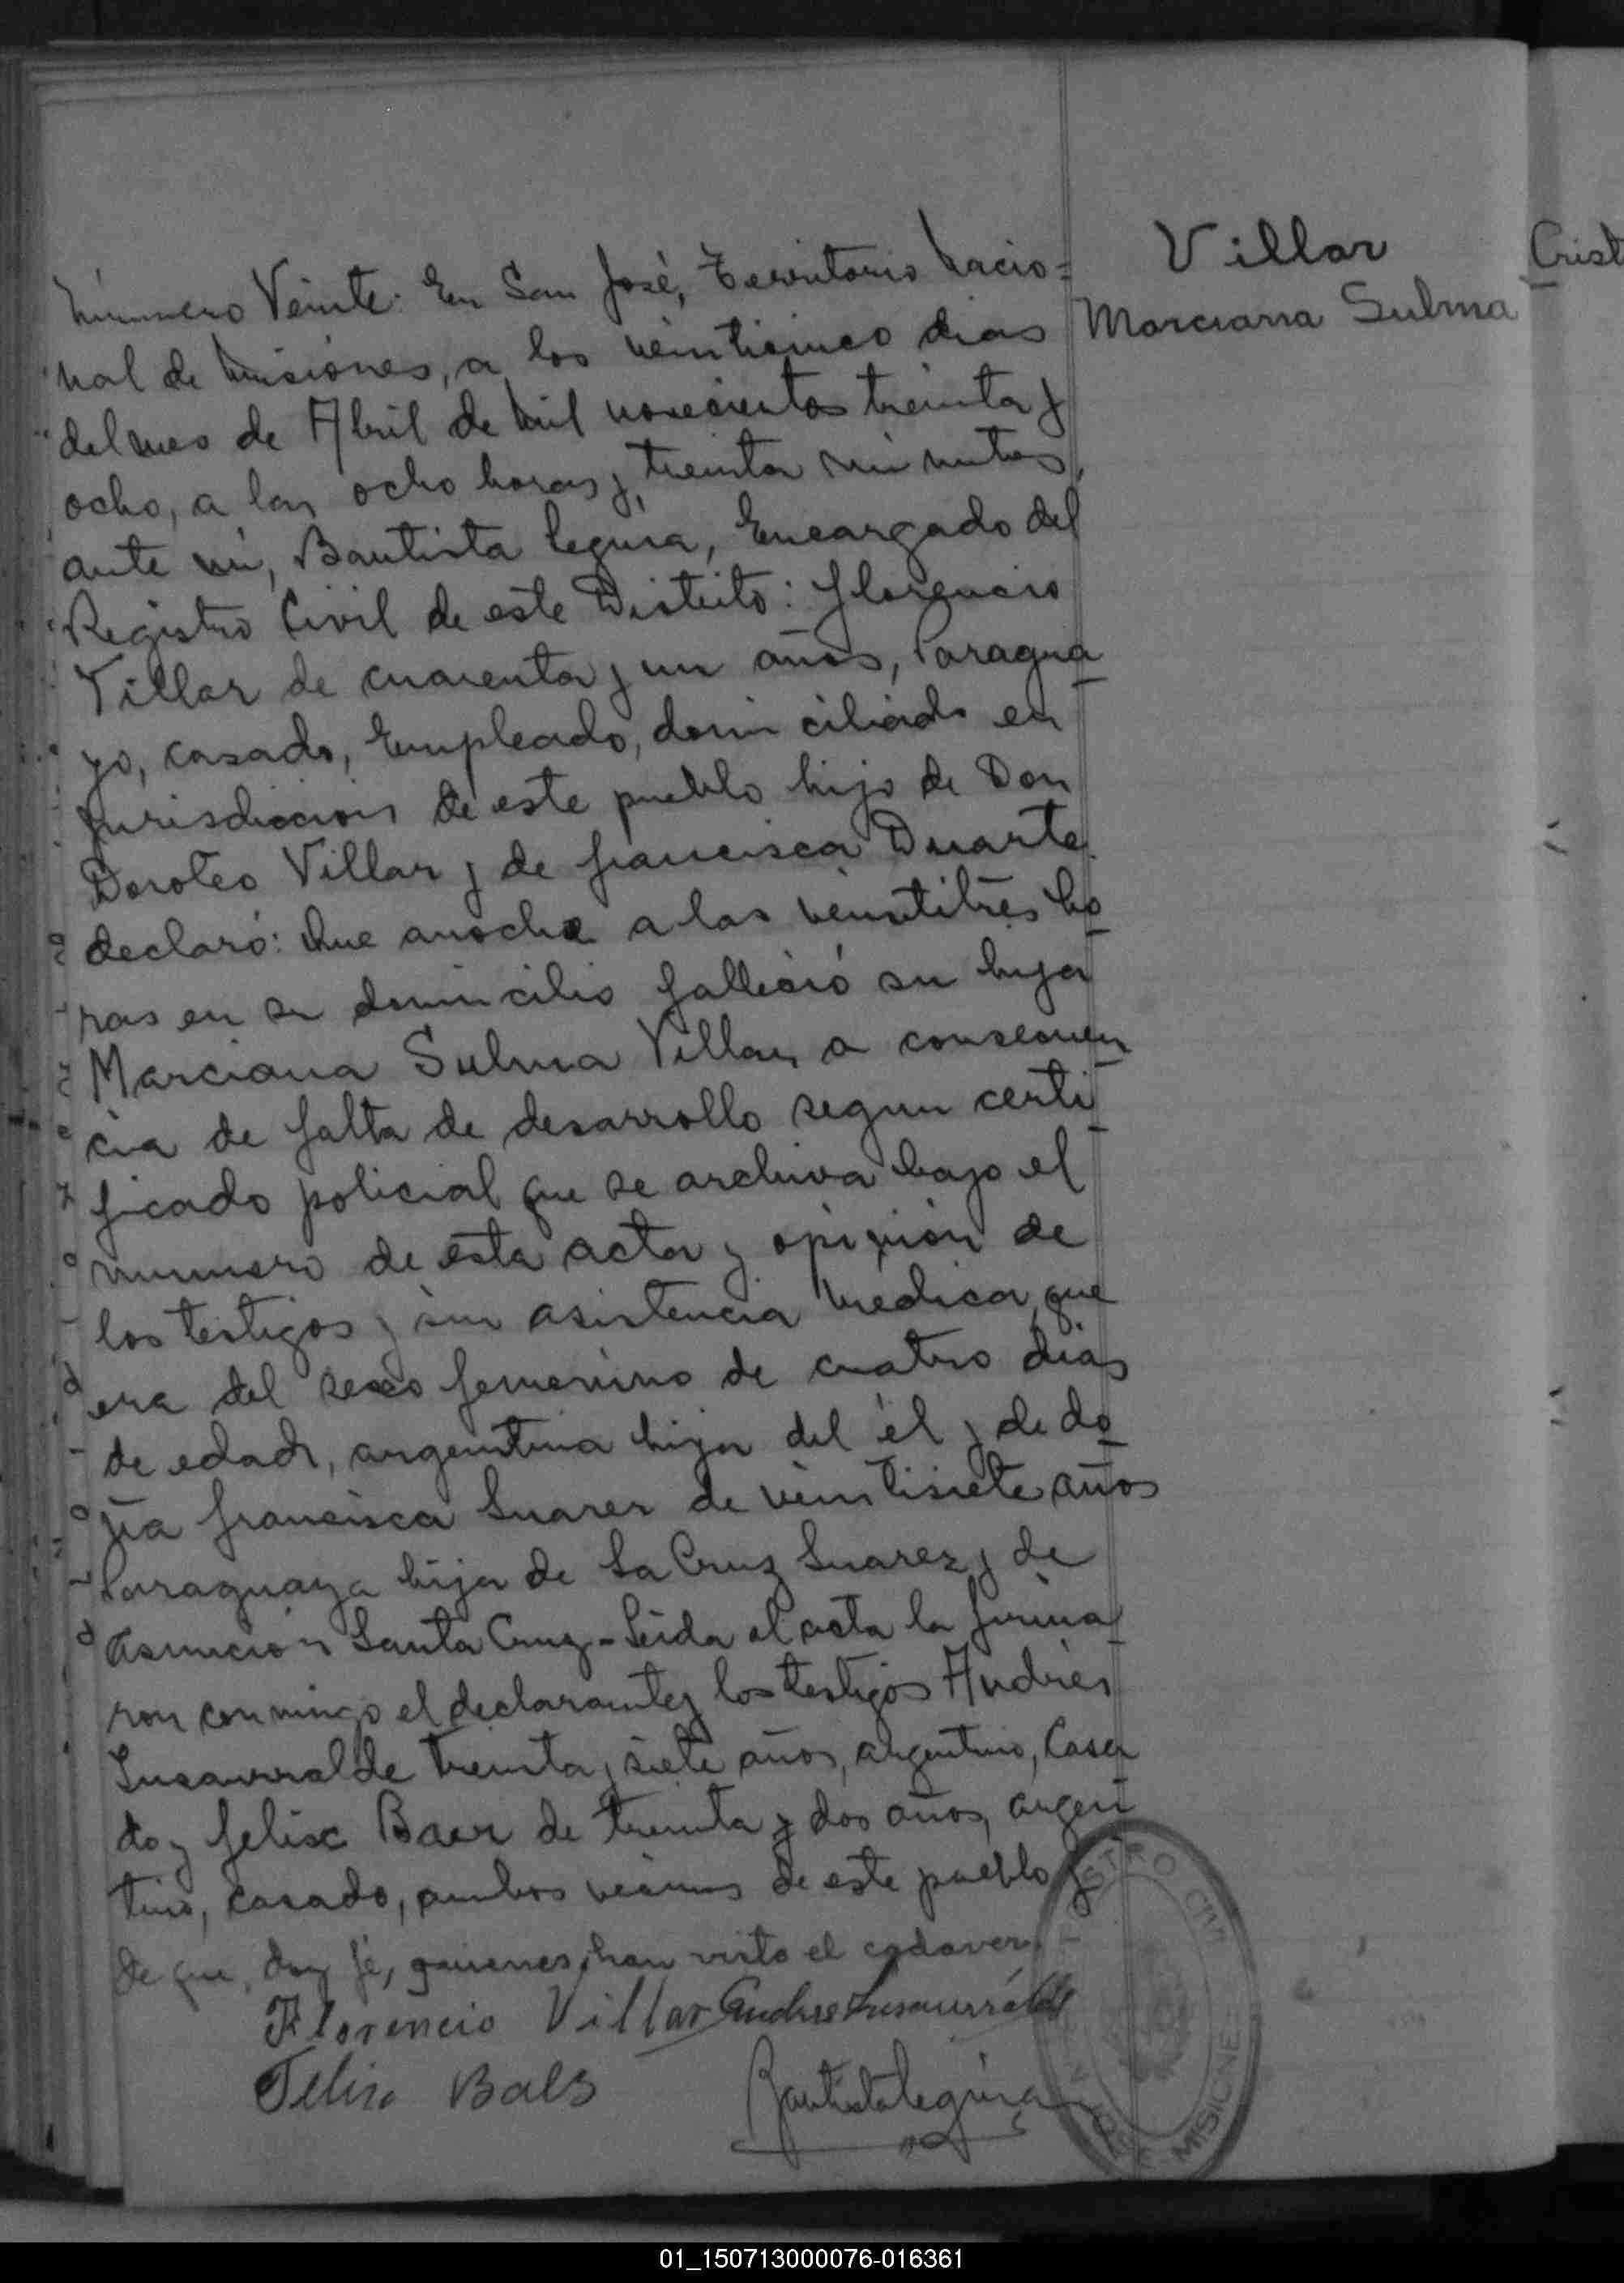 Villar
Marciana Sulma
Crist
Número Veinte: En San José, Territorio Nacio=
nal de Misiones, a los veinticinco dias
del mes de Abril de Mil novecientos treinta y
ocho, a las ocho horas y treinta minutos,
ante mi, Bautista Leguia, Encargado del
Registro Civil de este Distrito: Florencio
Villar de cuarenta y un años, Paragua
yo, casado, Empleado, domiciliado en
Jurisdiccion de este pueblo hijo de Don
Doroteo Villar y de Francisca Duarte
declaró: Que anoche a las veintitrés ho
ras en su domicilio falleció su hija
Marciana Sulma Villar, a consecuen
cia de falta de desarrollo segun certi
ficado policial que se archiva bajo el
numero de esta acta y opinión de
los testigos y sin asistencia medica, que
era del sexo femenino de cuatro dias
de edad, argentina hija del él y de do
ña Francisca Suarez de veintisiete años
Paraguaya hija de La Cruz Suarez y de
Asunción Santa Cruz - Leida el acta la firma
ron conmigo el declarante y los testigos Andrés
Insaurralde treinta y siete años, argentino, Casa
do y Felix Baer de treinta y dos años, argen
tino, casado, ambos vecinos de este pueblo y
de que, doy fé, quienes han visto el cadaver.
Florencio Villar Andres Insaurralde
Felix Baes
Bautista Leguia
MISIONE
01_150713000076-016361